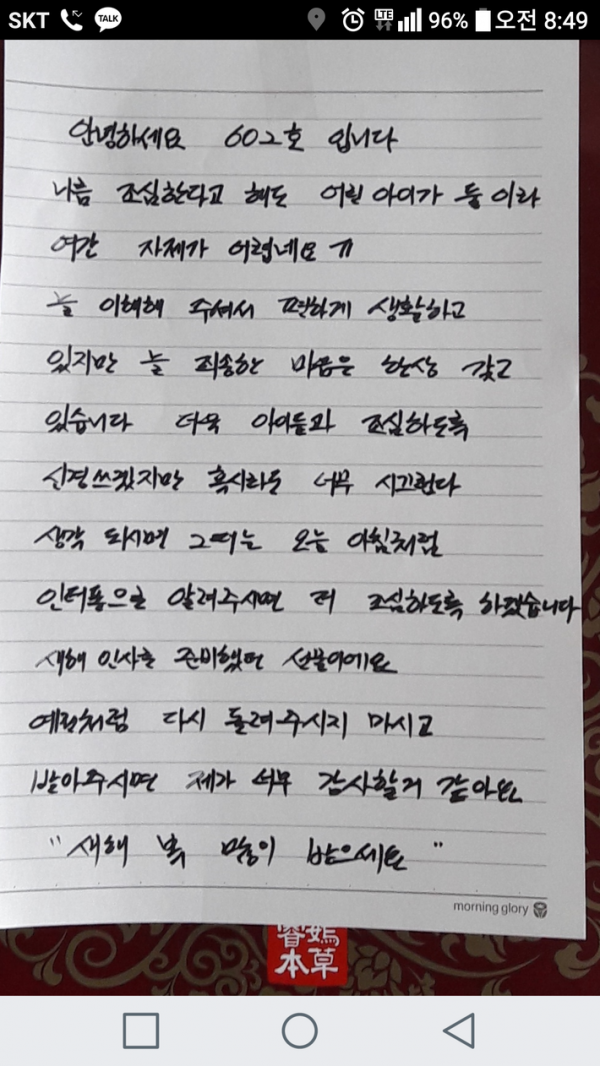 SKT TALK LTE 96% 오전 8:49
안녕하세요 602호 입니다
나름 조심한다고 해도 어린아이가 둘이라
여간 자제가 어렵네요 ㅠ
늘 이해해 주셔서 편하게 생활하고
있지만 늘 죄송한 마음은 항상 갖고
있습니다 더욱 아이들과 조심하도록
신경쓰겠지만 혹시라도 너무 시끄럽다
생각 되시면 그때는 오늘 아침처럼
인터폰으로 알려주시면 더 조심하도록 하겠습니다
새해 인사를 준비했던 선물이에요
예전처럼 다시 돌려주시지 마시고
받아주시면 제가 너무 감사할거 같아요
"새해 복 많이 받으세요"
morning glory
本草